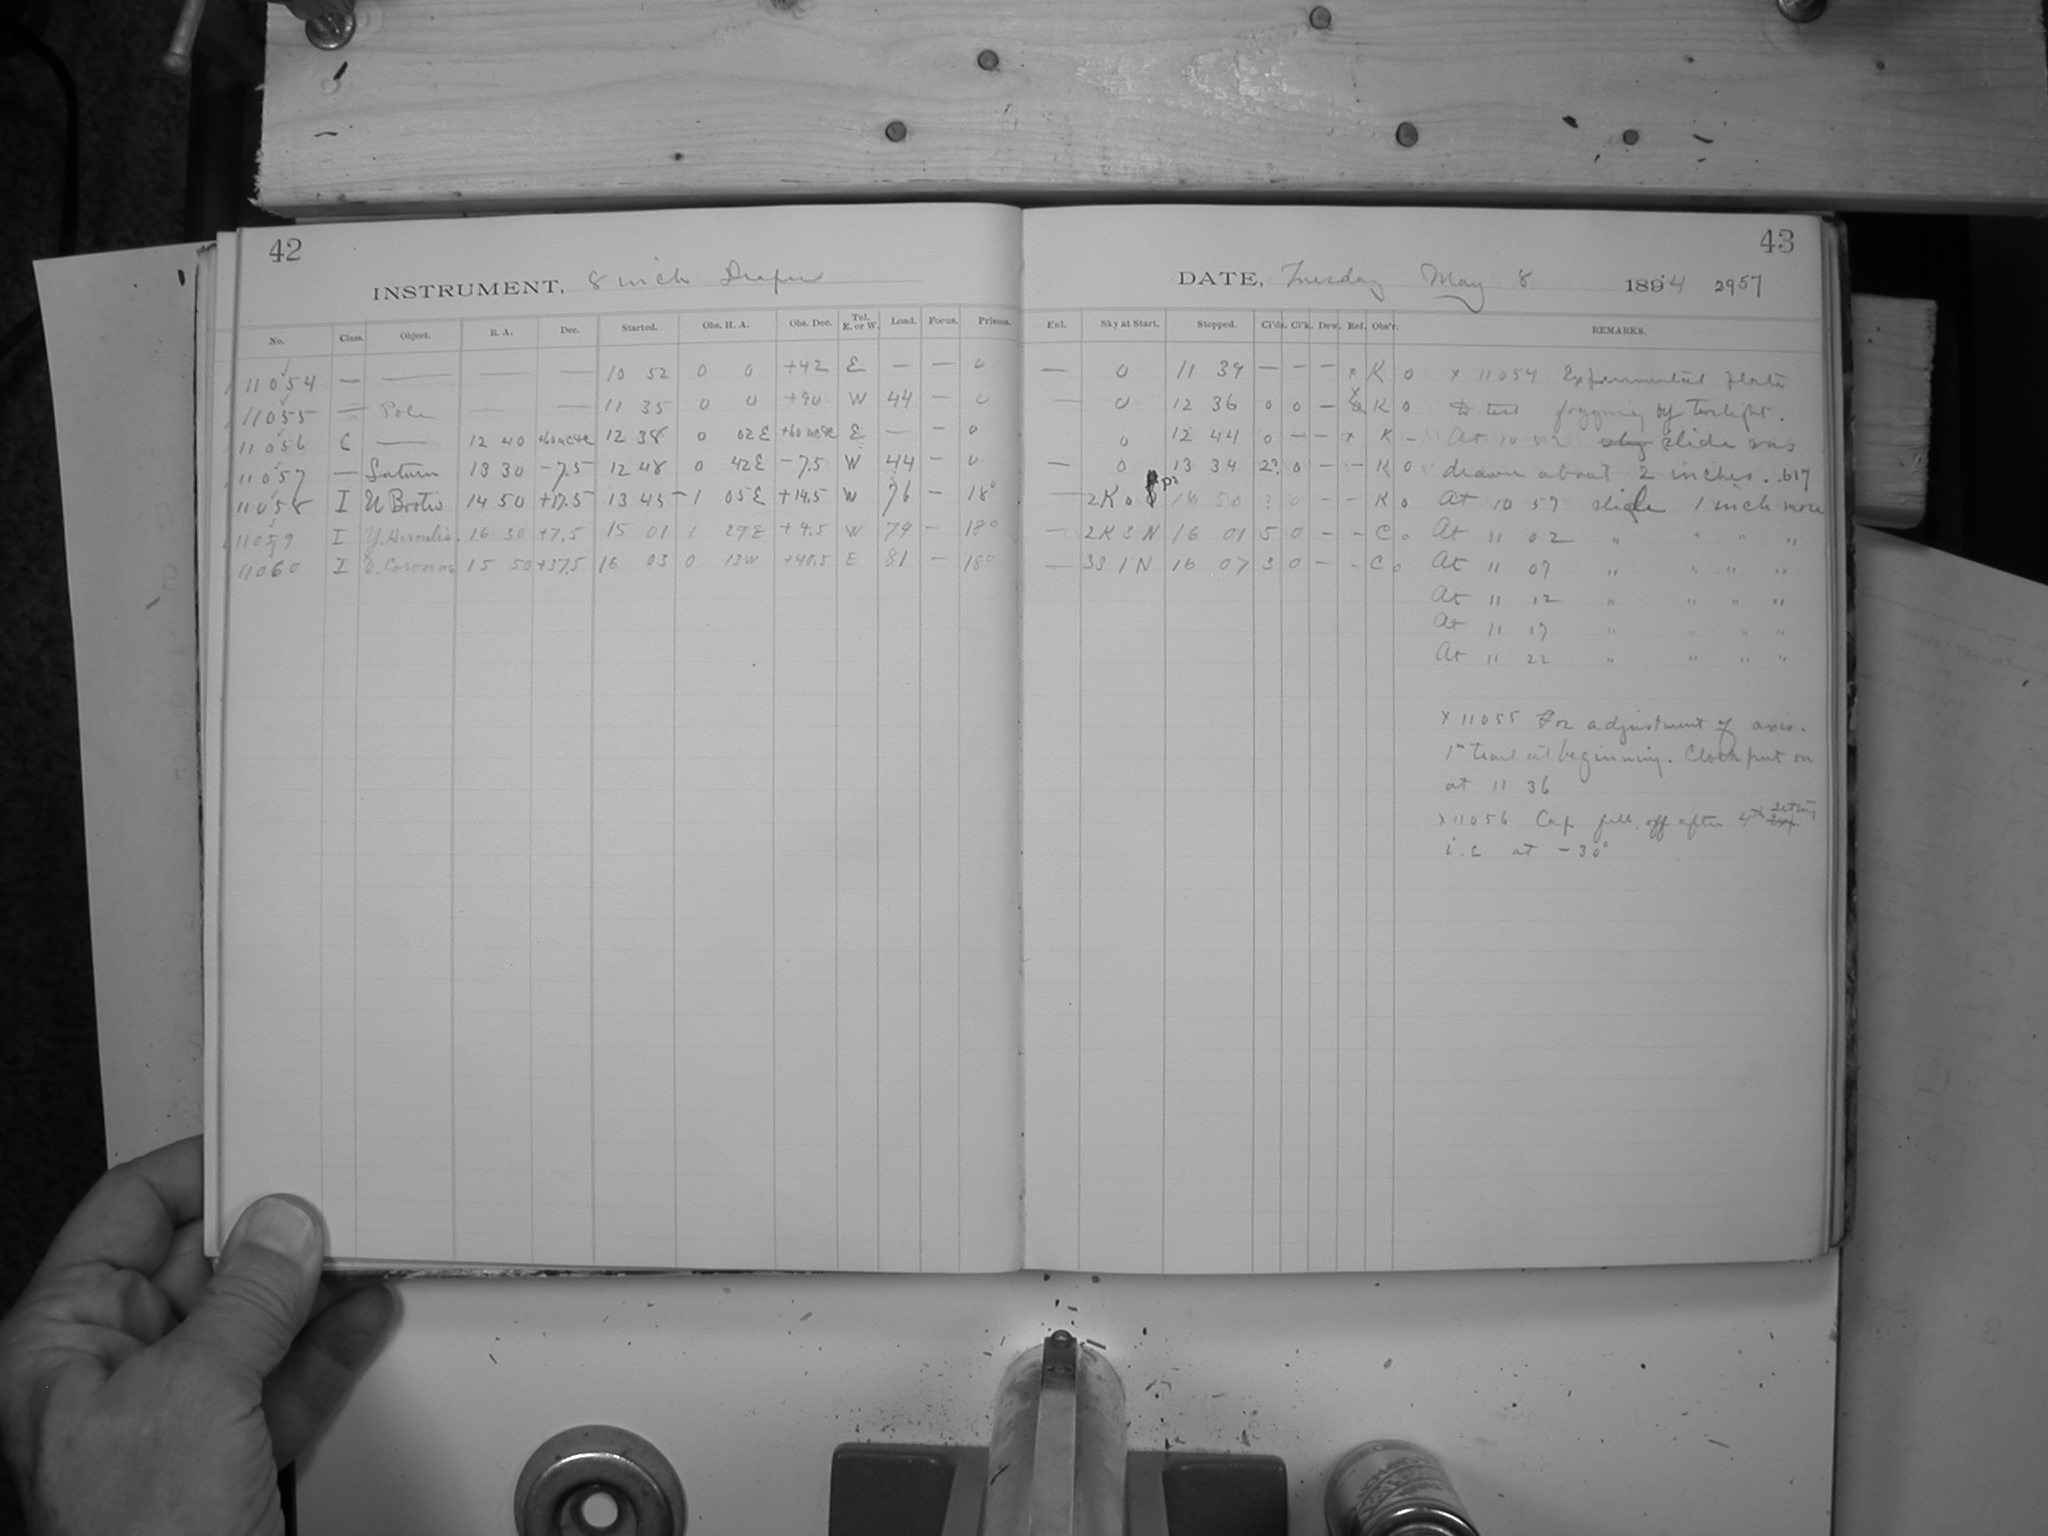 42
INSTRUMENT, 8 inch Draper
No. Class. Object. R. A. Dec. Started. Obs. H. A. Obs. Dec. Tel. E. or W. Load. Focus. Prisms.
11054 — — — — 10 52 0 0 +42 E — — 0
11055 — Pole — — 11 35 0 0 +90 W 44 — 0
11056 C — 12 40 12 38 0 02E E — — 0
11057 — Saturn 13 30 -7.5 12 48 0 42E -7.5 W 44 — 0
11058 I U Bootis 14 50 +17.5 13 45 1 05E +14.5 W 76 — 18°
11059 I Y. Herculis. 16 30 +7.5 15 01 1 29E +4.5 W 79 — 18°
11060 I Coronae 15 50 +37.5 16 03 0 13W +40.5 E 81 — 18°
43
DATE, Tuesday May 8 1894 2957
Ent. Sky at Start. Stopped. Cl'ds. Cl'k. Dew. Ref. Obs'r. REMARKS.
— 0 11 39 — — — x K 0 x 11054 Experimental plate
— 0 12 36 0 0 — x K 0 to test fogging by twilight.
0 12 44 0 — — x K — At 10 52 slide was
— 0 13 34 2? 0 — — K 0 drawn about 2 inches. .617
— 2K0 14 50 ? 0 — — K 0 At 10 57 slide 1 inch more
— 2K3N 16 01 5 0 — — C 0 At 11 02 " " " "
— 3S1N 16 07 3 0 — — C 0 At 11 07 " " " "
At 11 12 " " " "
At 11 17 " " " "
At 11 22 " " " "
x 11055 For adjustment of axis.
1m trail at beginning. Clock put on
at 11 36
x 11056 Cap fell off after 4th setting
i.e at -30°